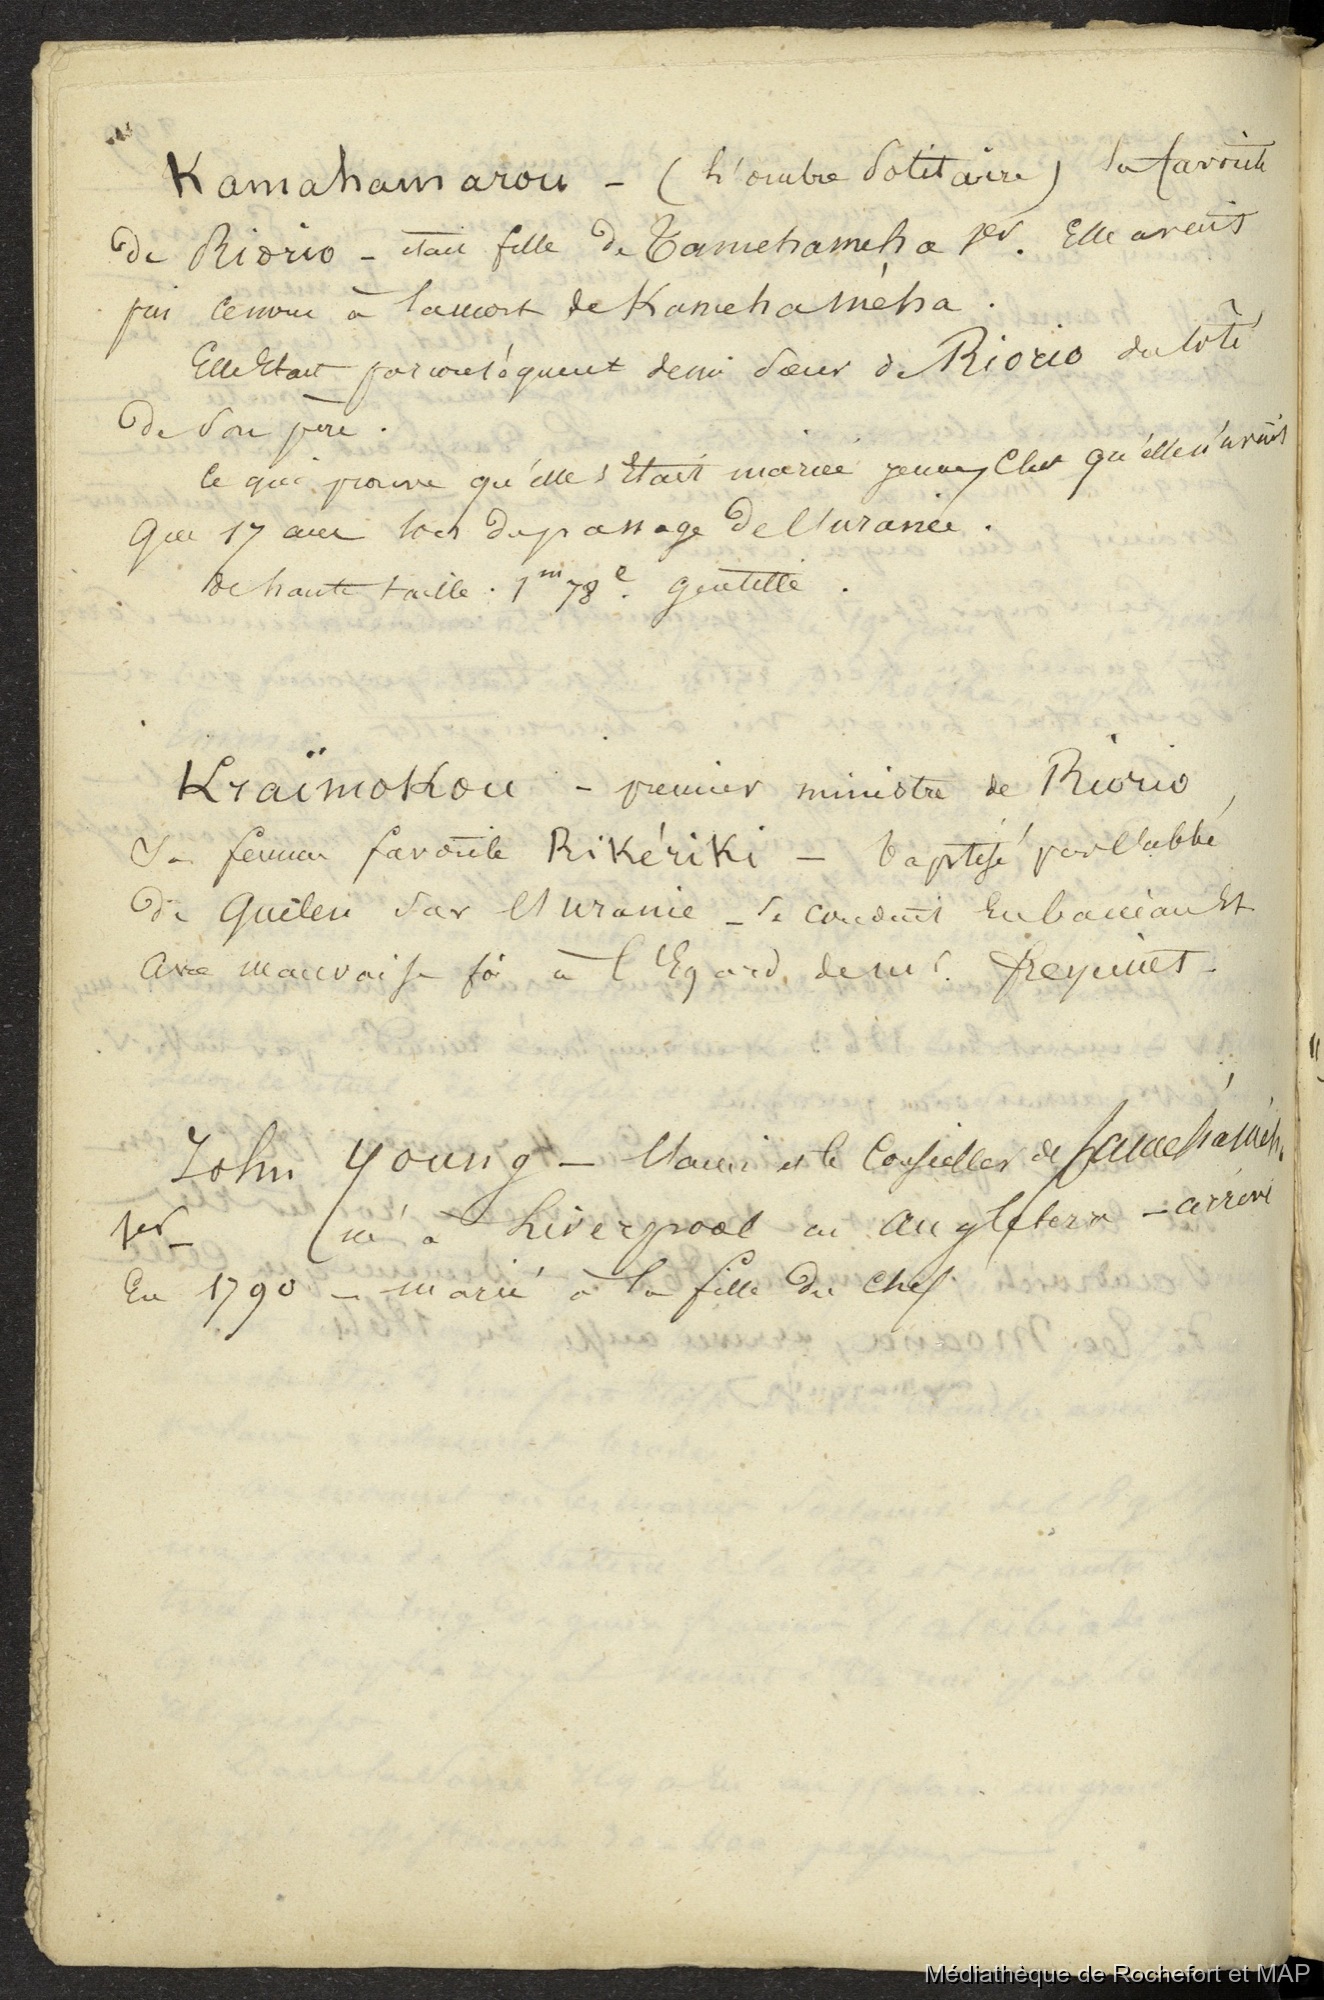 Kamahamarou - (L'ombre Solitaire) la favorite
de Riorio - était fille de Tamehameha 1er. Elle avait
à la mort de Kamehaméha.
Elle Etait par conséquent demi Sœur de Riorio du Côté
de Son père.
Ce qui prouve qu'elle s'Etait mariée jeune, C'est qu'elle n'avait
que 17 ans lors du passage de l'Uranie.
de haute taille. 1m 78c. gentille.
Kraïmokou - premier ministre de Riorio,
Sa femme favorite Rikériki - baptisé par l'abbé
de Quélen Sur l'Uranie - Se conduit
avec mauvaise foi à l'Egard de Mr. Freycinet -
John Young - l'ami et le Conseiller de Tamehameha
1er - né à Liverpool en Angleterre - arrivé
En 1790 - marié à la fille du chef
Médiathèque de Rochefort et MAP